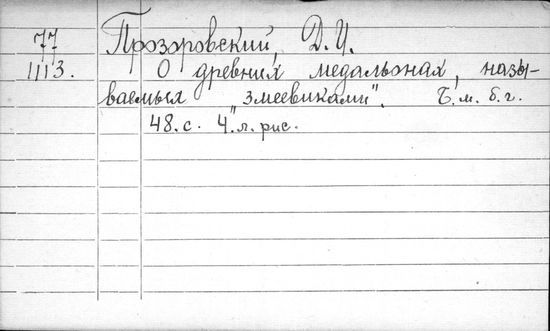 77 Прозоровский, Д.И.
1113. О древних медальонах, назы-
ваемых "змеевиками". Б.м.б.г.
48.с. 4.л.рис.